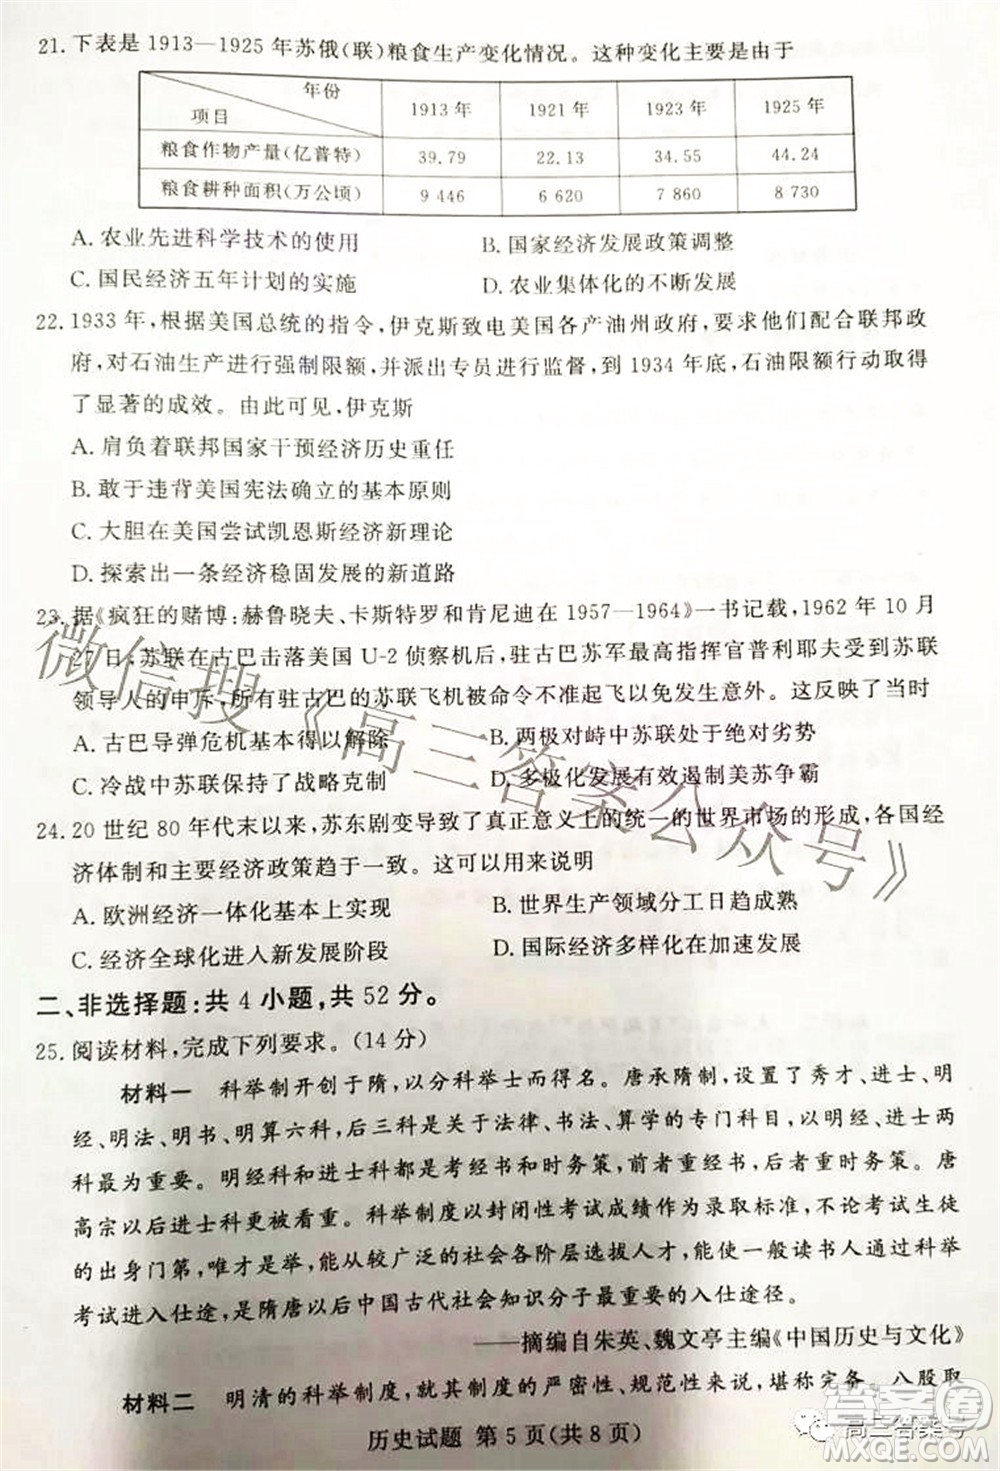 21. 下表是 1913—1925 年苏俄(联)粮食生产变化情况。这种变化主要是由于
年份
项目
1913 年 1921 年 1923 年 1925 年
粮食作物产量(亿普特) 39.79 22.13 34.55 44.24
粮食耕种面积(万公顷) 9 446 6 620 7 860 8 730
A. 农业先进科学技术的使用 B. 国家经济发展政策调整
C. 国民经济五年计划的实施 D. 农业集体化的不断发展
22. 1933 年，根据美国总统的指令，伊克斯致电美国各产油州政府，要求他们配合联邦政
府，对石油生产进行强制限额，并派出专员进行监督，到 1934 年底，石油限额行动取得
了显著的成效。由此可见，伊克斯
A. 肩负着联邦国家干预经济历史重任
B. 敢于违背美国宪法确立的基本原则
C. 大胆在美国尝试凯恩斯经济新理论
D. 探索出一条经济稳固发展的新道路
23. 据《疯狂的赌博：赫鲁晓夫、卡斯特罗和肯尼迪在 1957—1964》一书记载，1962 年 10 月
27 日，苏联在古巴击落美国 U-2 侦察机后，驻古巴苏军最高指挥官普利耶夫受到苏联
领导人的申斥，所有驻古巴的苏联飞机被命令不准起飞以免发生意外。这反映了当时
A. 古巴导弹危机基本得以解除 B. 两极对峙中苏联处于绝对劣势
C. 冷战中苏联保持了战略克制 D. 多极化发展有效遏制美苏争霸
24. 20 世纪 80 年代末以来，苏东剧变导致了真正意义上的统一的世界市场的形成，各国经
济体制和主要经济政策趋于一致。这可以用来说明
A. 欧洲经济一体化基本上实现 B. 世界生产领域分工日趋成熟
C. 经济全球化进入新发展阶段 D. 国际经济多样化在加速发展
二、非选择题：共 4 小题，共 52 分。
25. 阅读材料，完成下列要求。(14 分)
材料一 科举制开创于隋，以分科举士而得名。唐承隋制，设置了秀才、进士、明
经、明法、明书、明算六科，后三科是关于法律、书法、算学的专门科目，以明经、进士两
科最为重要。明经科和进士科都是考经书和时务策，前者重经书，后者重时务策。唐
高宗以后进士科更被看重。科举制度以封闭性考试成绩作为录取标准，不论考试生徒
的出身门第，唯才是举，能从较广泛的社会各阶层选拔人才，能使一般读书人通过科举
考试进入仕途，是隋唐以后中国古代社会知识分子最重要的入仕途径。
——摘编自朱英、魏文亭主编《中国历史与文化》
材料二 明清的科举制度，就其制度的严密性、规范性来说，堪称完备。八股取
历史试题 第 5 页(共 8 页)
微信搜《高三答案公众号》
高三答案号
答案圈
MXQE.COM